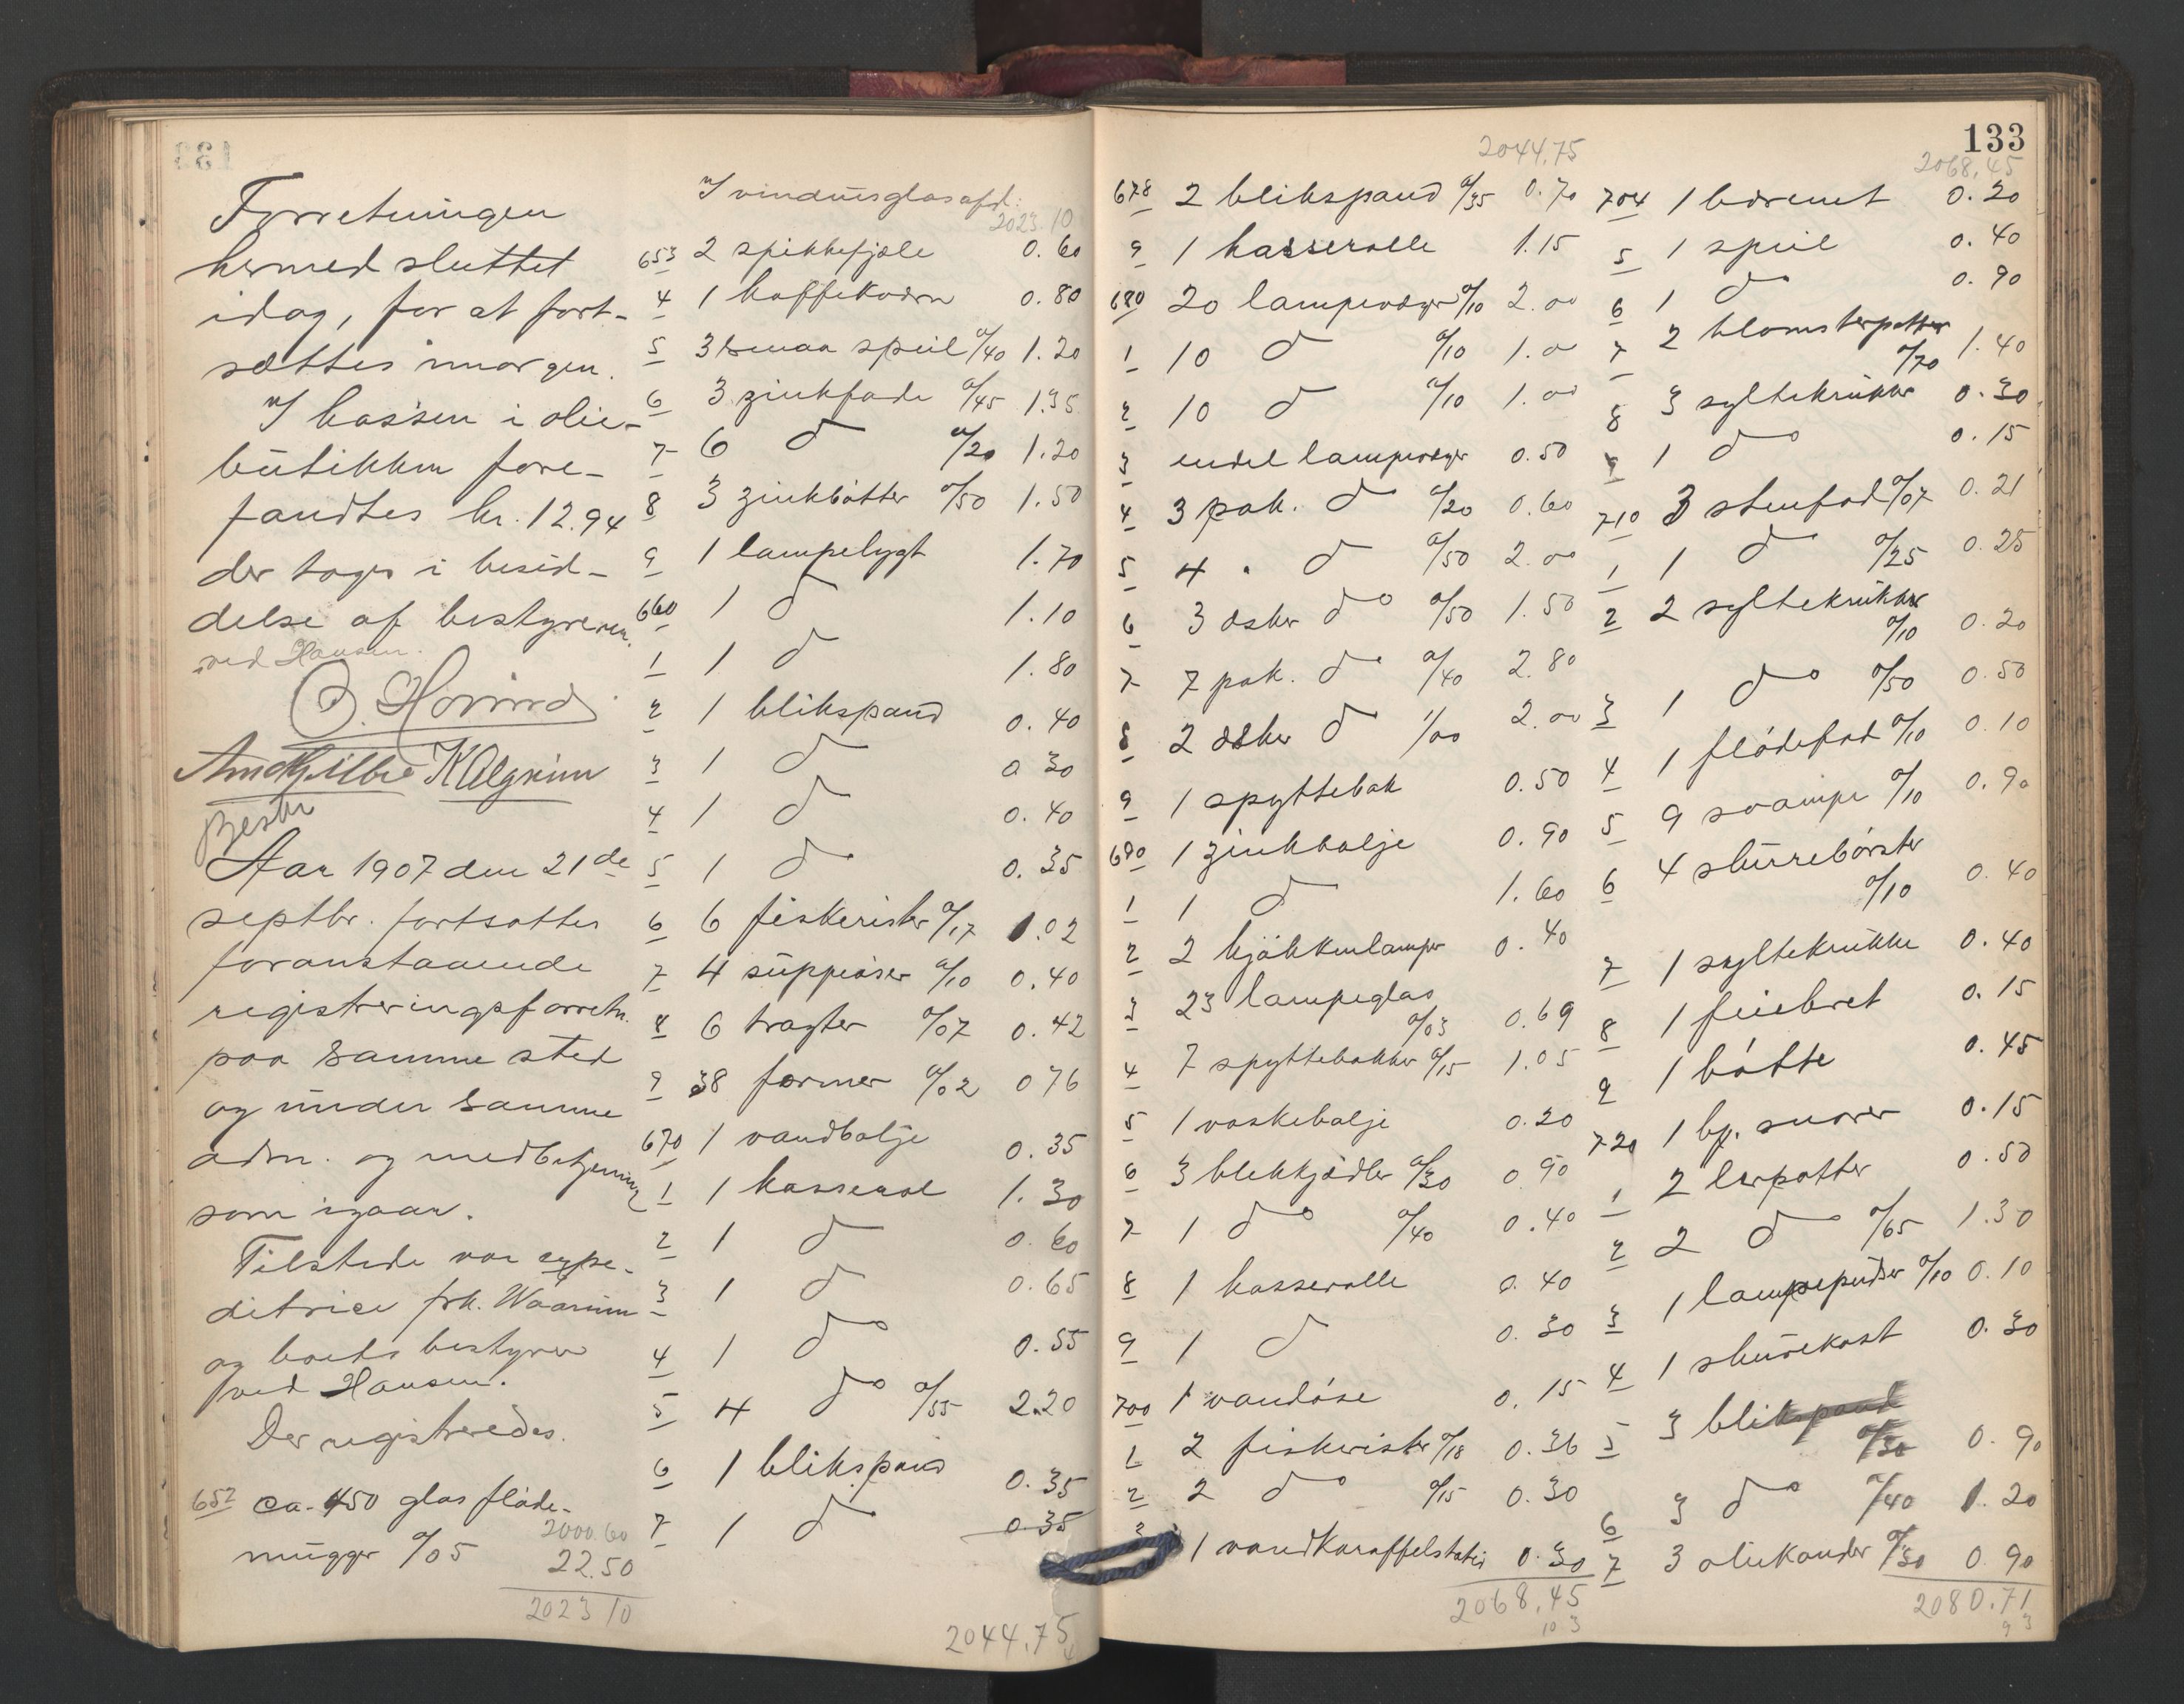 Forretningen
hermed sluttet
idag, for at fort-
sættes imorgen.
I kassen i olie-
butikken fore-
fandtes kr. 12.94
der tages i besid-
delse af bestyreren
ved Hansen.
K Algrim
Bestr
Aar 1907 den 21de
septbr. fortsattes
foranstaaende
registreringsforretn.
paa samme sted
og under samme
adm. og medbetjening
som igaar.
Tilstede var expe-
ditrice frk. Waarum
og boets bestyrer
ved Hansen.
Der registreredes.
652 ca. 450 glas fløde-
mugger a/05 22.50
2000.60
2023 10
I vinduesglasafd:
2023.10
653 2 spikkefjæle 0.60
4 1 kaffekværn 0.80
5 3 smaa speil a/40 1.20
6 3 zinkfade a/45 1.35
7 6 do a/20 1.20
8 3 zinkbøtter a/50 1.50
9 1 lampelygt 1.70
660 1 do 1.10
1 1 do 1.80
2 1 blikspand 0.40
3 1 do 0 30
4 1 do 0.40
5 1 do 0.35
6 6 fiskerister a/17 1.02
7 4 suppeøser a/10 0.40
8 6 tragter a/07 0.42
9 38 former a/02 0 76
670 1 vandbalje 0.35
1 1 kasserol 1.30
2 1 do 0.60
3 1 do 0.65
4 1 do 0.55
5 4 do a/55 2.20
6 1 blikspand 0.35
7 1 do 0.35
2044.75
133
2044.75
678 2 blikspand a/35 0.70
9 1 kasserolle 1.15
680 20 lampevæger a/10 2.00
1 10 do a/10 1.00
2 10 do a/10 1.00
3 endel lampevæger 0.50
4 3 pak. do a/20 0.60
5 4 " do a/50 2.00
6 3 æsker do a/50 1.50
7 7 pak. do a/40 2.80
8 2 æsker do 1/00 2.00
9 1 spyttebak 0.50
690 1 zinkbalje 0.90
1 1 do 1.60
2 2 kjøkkenlamper 0.40
3 23 lampeglas
a/03 0.69
4 7 spyttebakker a/15 1.05
5 1 vaskebalje 0.20
6 3 blekkjedler a/30 0 90
7 1 do a/40 0.40
8 1 kasserolle 0.40
9 1 do 0.30
700 1 vandøse 0.15
1 2 fiskerister a/18 0.36
2 2 do a/15 0.30
3 1 vandkaraffelstativ 0.30
2068,45
10 3
2068,45
704 1 bærenet 0.20
5 1 speil 0.40
6 1 do 0.90
7 2 blomsterpotter
a/70 1.40
8 3 syltekrukker 0.30
9 1 do 0.15
710 3 stenfad a/07 0.21
1 1 do a/25 0.25
2 2 syltekrukker
a/10 0.20
3 1 do a/50 0.50
4 1 flødefad a/10 0.10
5 9 svampe a/10 0.90
6 4 skurrebørster
a/10 0.40
7 1 syltekrukke 0.40
8 1 feiebret 0.15
9 1 bøtte 0.45
720 1 bg. snører 0.15
1 2 lerpotter 0.50
2 2 do a/65 1.30
3 1 lampepudser a/10 0.10
4 1 skurekost 0.30
5 3 blikspand
a/30 0.90
6 3 do a/40 1.20
7 3 oliekander a/30 0.90
2080.71
9 3